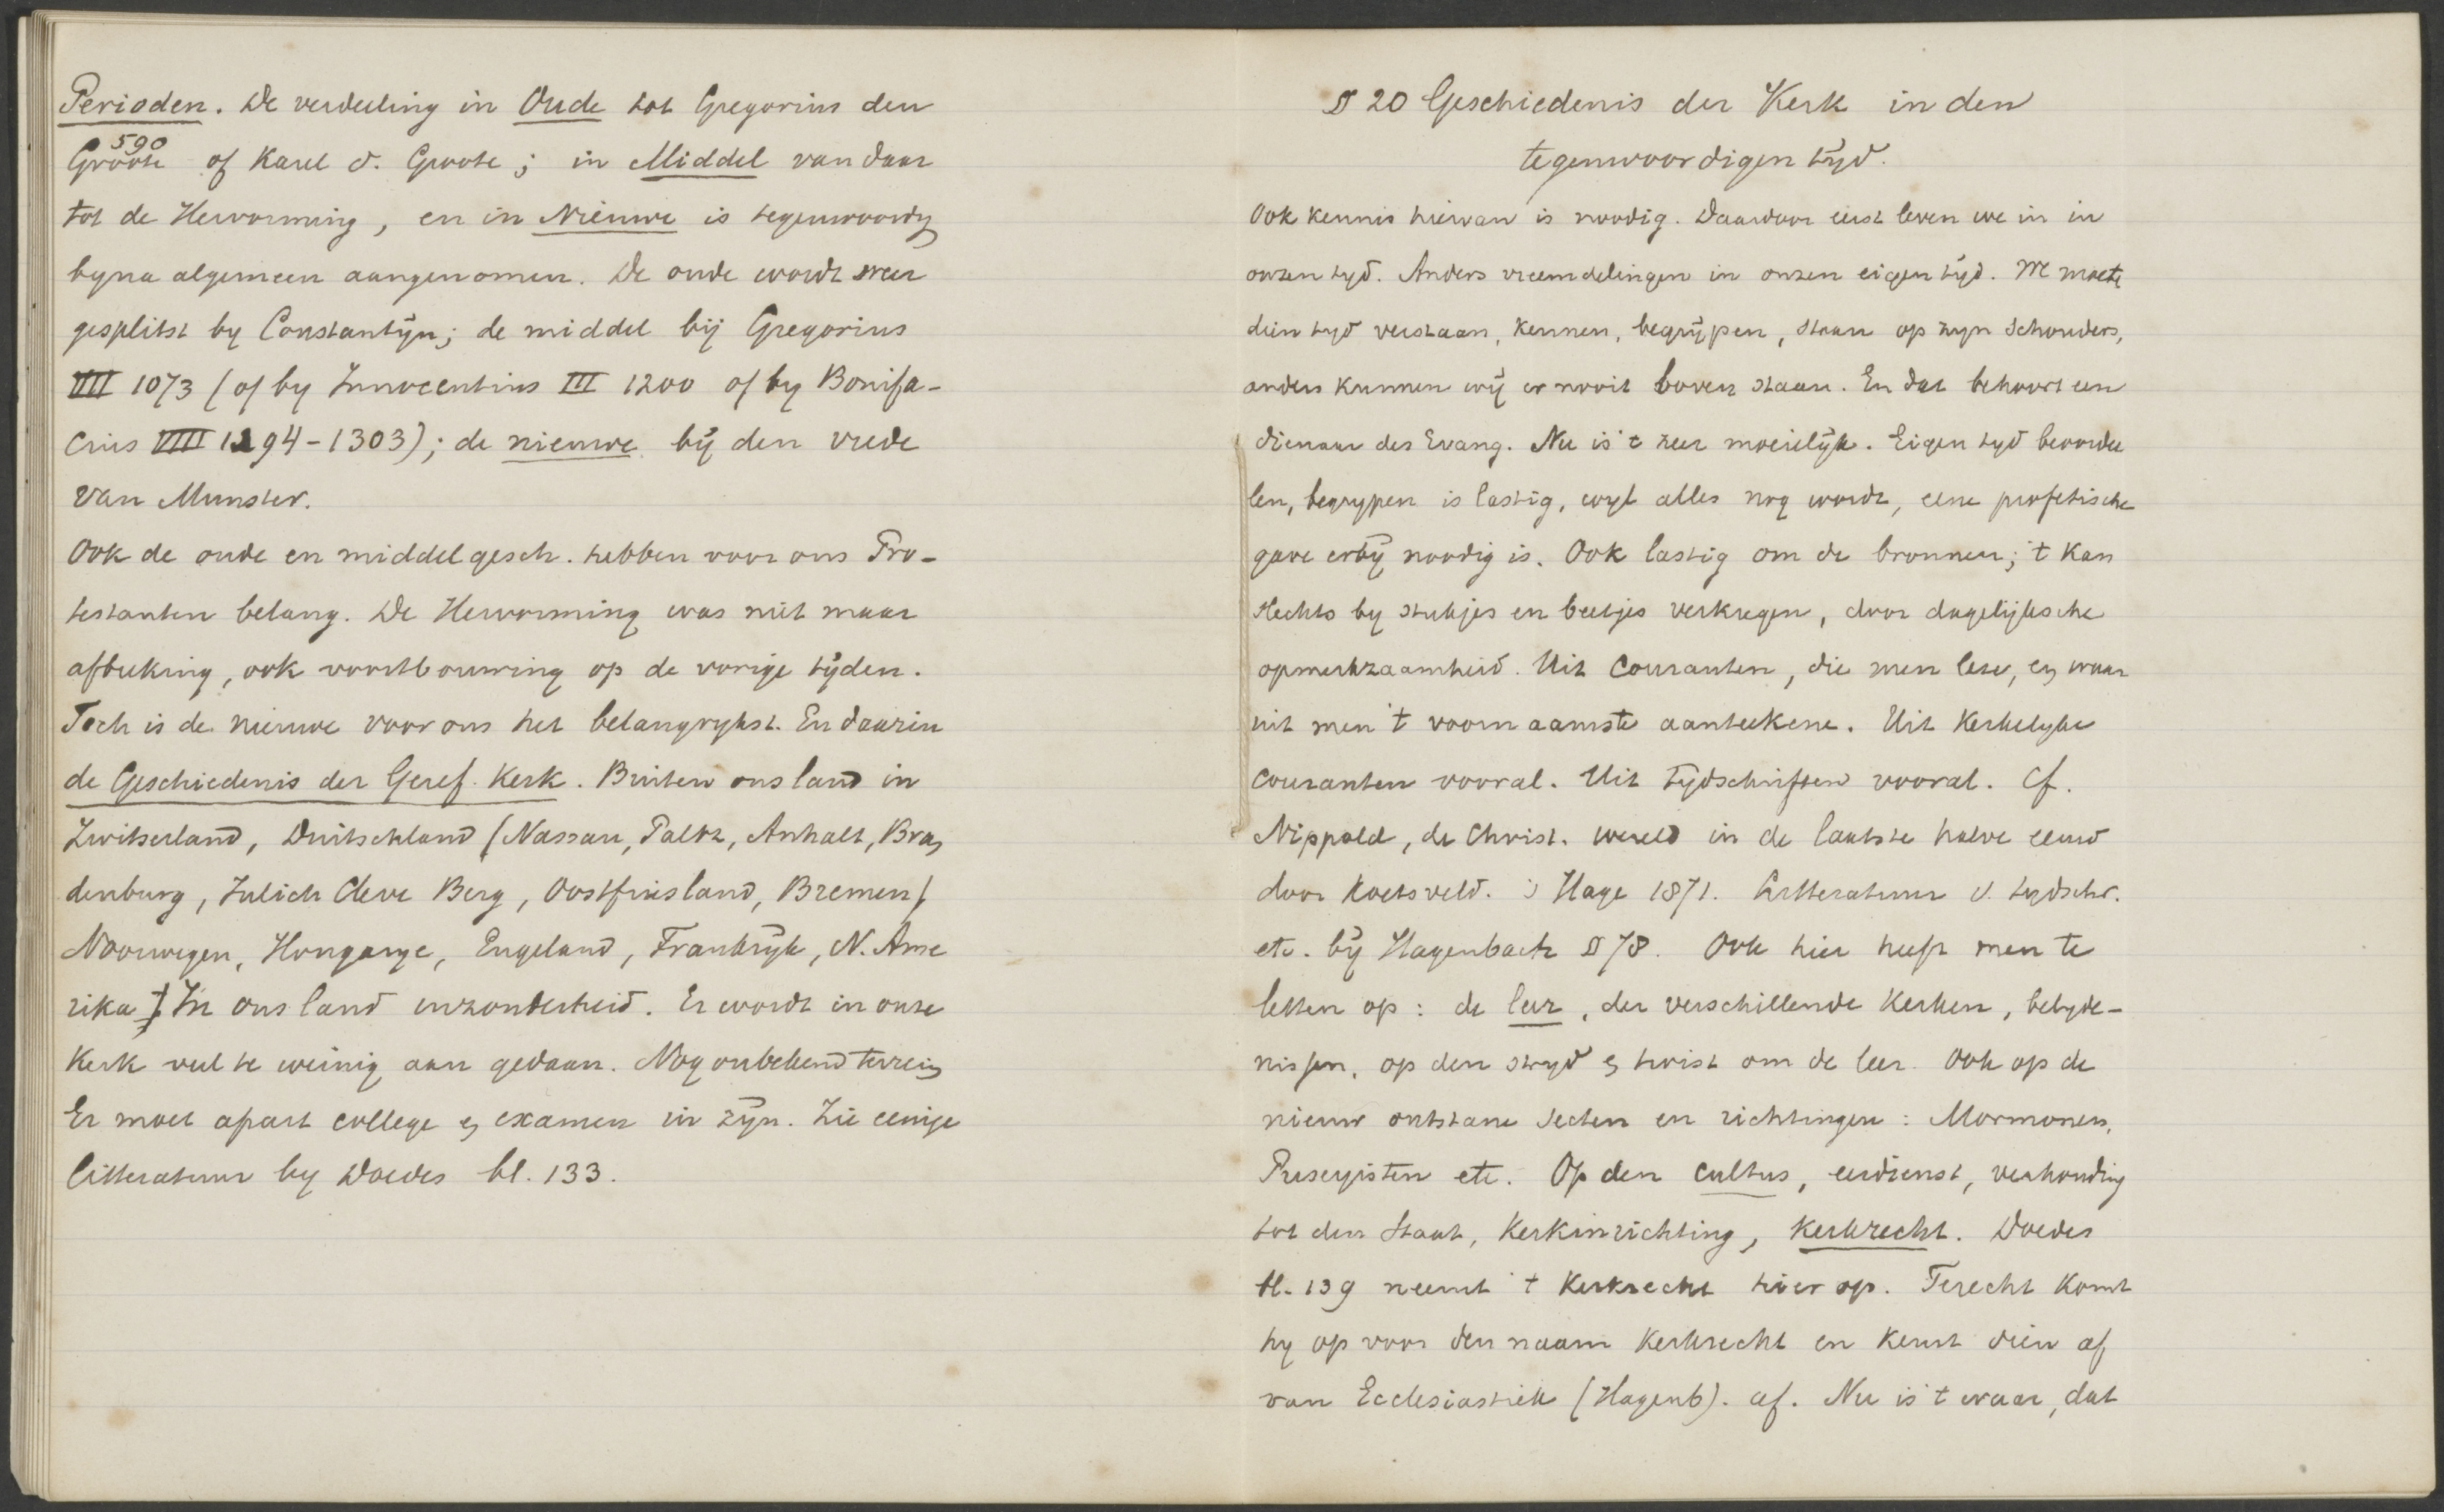 Perioden. De verdeeling in Oude tot Gregorius den
590
Groote of Karel d. Groote; in Middel van daar
tot de Hervorming, en in Nieuwe is tegenwoordig
byna algemeen aangenomen. De oude wordt weer
gesplitst by Constantijn; de middel bij Gregorius
VII 1073 (of by Innocentius III 1200 of by Bonifa-
cius VIII 1294-1303); de nieuwe bij den vrede
van Munster.
Ook de oude en middel gesch. hebben voor ons Pro-
testanten belang. De Hervorming was niet maar
afbreking, ook voortbouwing op de vorige tijden.
Toch is de nieuwe voor ons het belangrykst. En daarin
de Geschiedenis der Geref. Kerk. Buiten ons land in
Zwitserland, Duitschland (Nassau, Paltz, Anhalt, Bran
denburg, Julich Cleve Berg, Oostfriesland, Bremen)
Noorwegen, Hongarye, Engeland, Frankrijk, N. Ame
rika) In ons land inzonderheid. Er wordt in onze
Kerk veel te weinig aan gedaan. Nog onbekend terrein
Er moet apart college en examen in zijn. Zie eenige
litteratuur by Doedes bl. 133.
§ 20 Geschiedenis der Kerk in den
tegenwoordigen tijd.
Ook kennis hiervan is noodig. Daardoor eerst leven we in in
onzen tyd. Anders vreemdelingen in onzen eigen tijd. We moeten
dien tyd verstaan, kennen, begrijpen, staan op zyn schouders,
anders kunnen wij er nooit boven staan. En dat behoort een
dienaar des Evang. Nu is 't zeer moeielijk. Eigen tyd beoordee
len, begrypen is lastig, wyl alles nog wordt, eene profetische
gave erbij noodig is. Ook lastig om de bronnen; 't kan
slechts by stukjes en beetjes verkregen, door dagelijksche
opmerkzaamheid. Uit Couranten, die men leze, en waar
uit men 't voornaamste aanteekene. Uit Kerkelyke
couranten vooral. Uit tydschriften vooral. Cf.
Nippold, de Christ. wereld in de laatste halve eeuw
door Koetsveld. 's Hage 1871. Litteratuur v. tydschr.
etc. bij Hagenbach § 78. Ook hier heeft men te
letten op: de leer, der verschillende Kerken, belyde-
nissen, op den stryd en twist om de leer. Ook op de
nieuw ontstane secten en richtingen: Mormonen,
Puseyisten etc. Op den cultus, eerdienst, verhouding
tot den Staat, Kerkinrichting, Kerkrecht. Doedes
bl. 139 neemt 't Kerkrecht hier op. Terecht komt
hy op voor den naam Kerkrecht en keurt dien af
van Ecclesiastiek (Hagenb). af. Nu is 't waar, dat